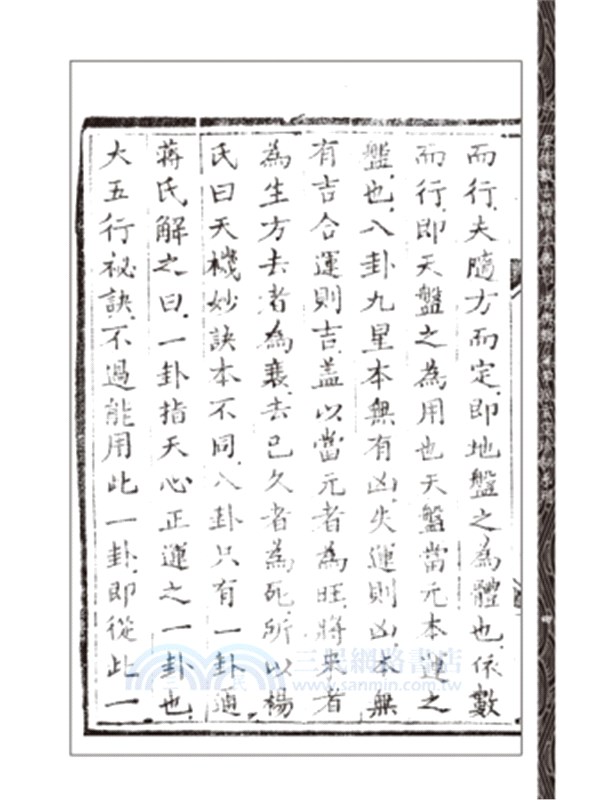 而行.夫隨方而定.即地盤之為體也.依數
而行.即天盤之為用也天盤當元本運之
盤也.八卦九星本無有凶.失運則凶本無
有吉合運則吉.蓋以當元者為旺.將來者
為生方去者為衰.去已久者為死.所以楊
氏曰天機妙訣本不同.八卦只有一卦通
蔣氏解之曰.一卦指天心正運之一卦也.
大五行祕訣.不過能用此一卦.即從此一
三民網路書店
www.sanmin.com.tw